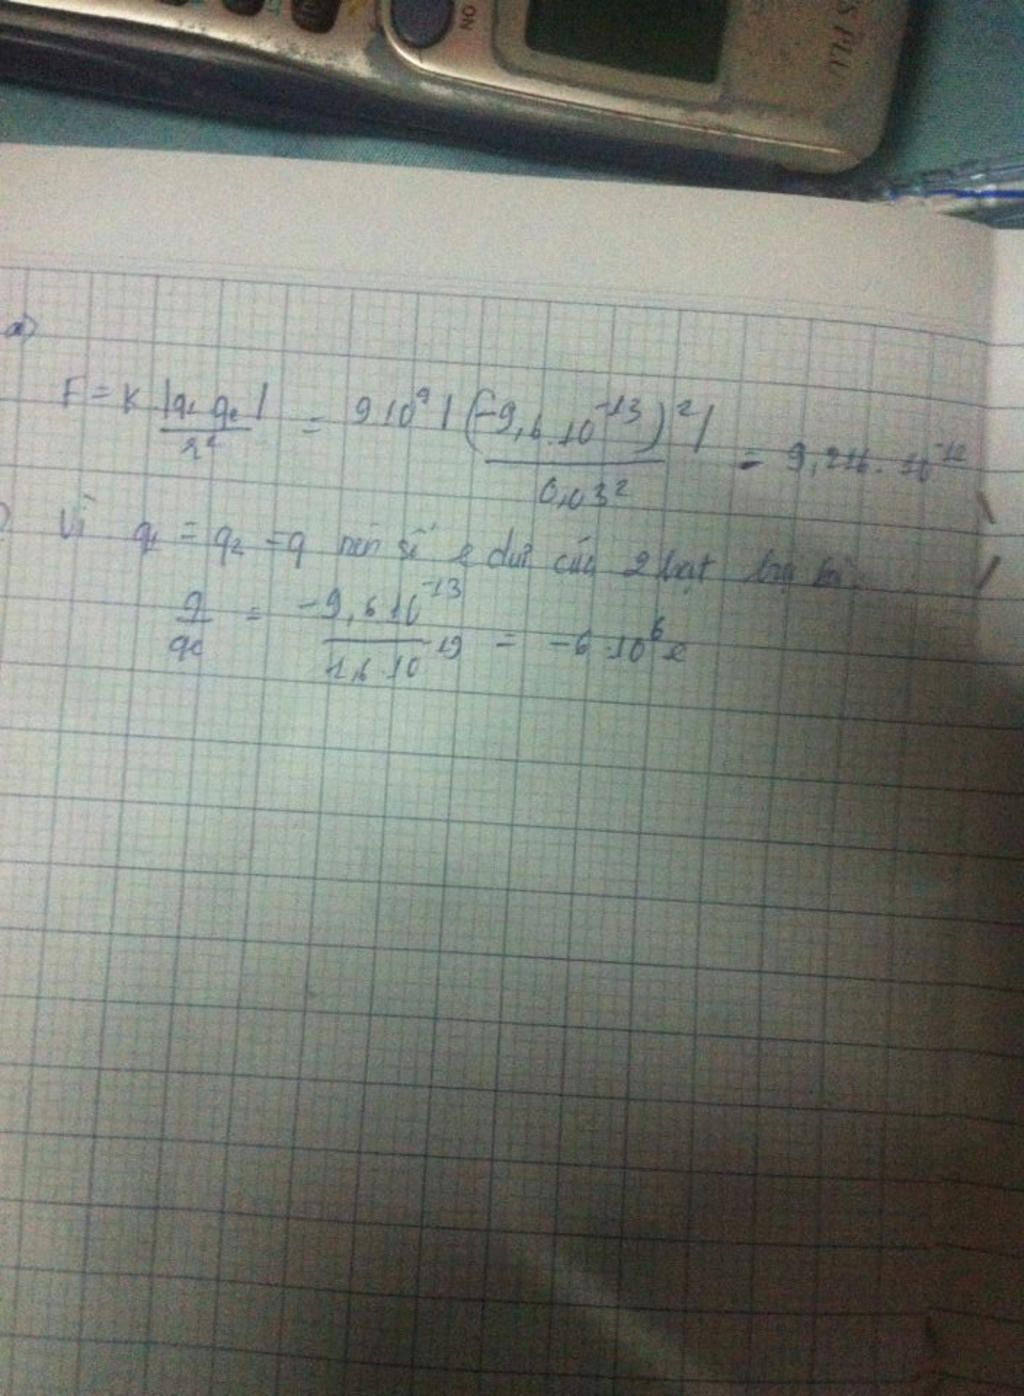 NO
ES PLU
a)
F = K |q1 q2| / r² = 9.10⁹ |(-9,6.10⁻¹³)²| / 0,03² = 9,216.10⁻¹²
Vì q1 = q2 = q nên số e dư của 2 hạt bụi
q / qe = -9,6.10⁻¹³ / 1,6.10⁻¹⁹ = -6.10⁶ e